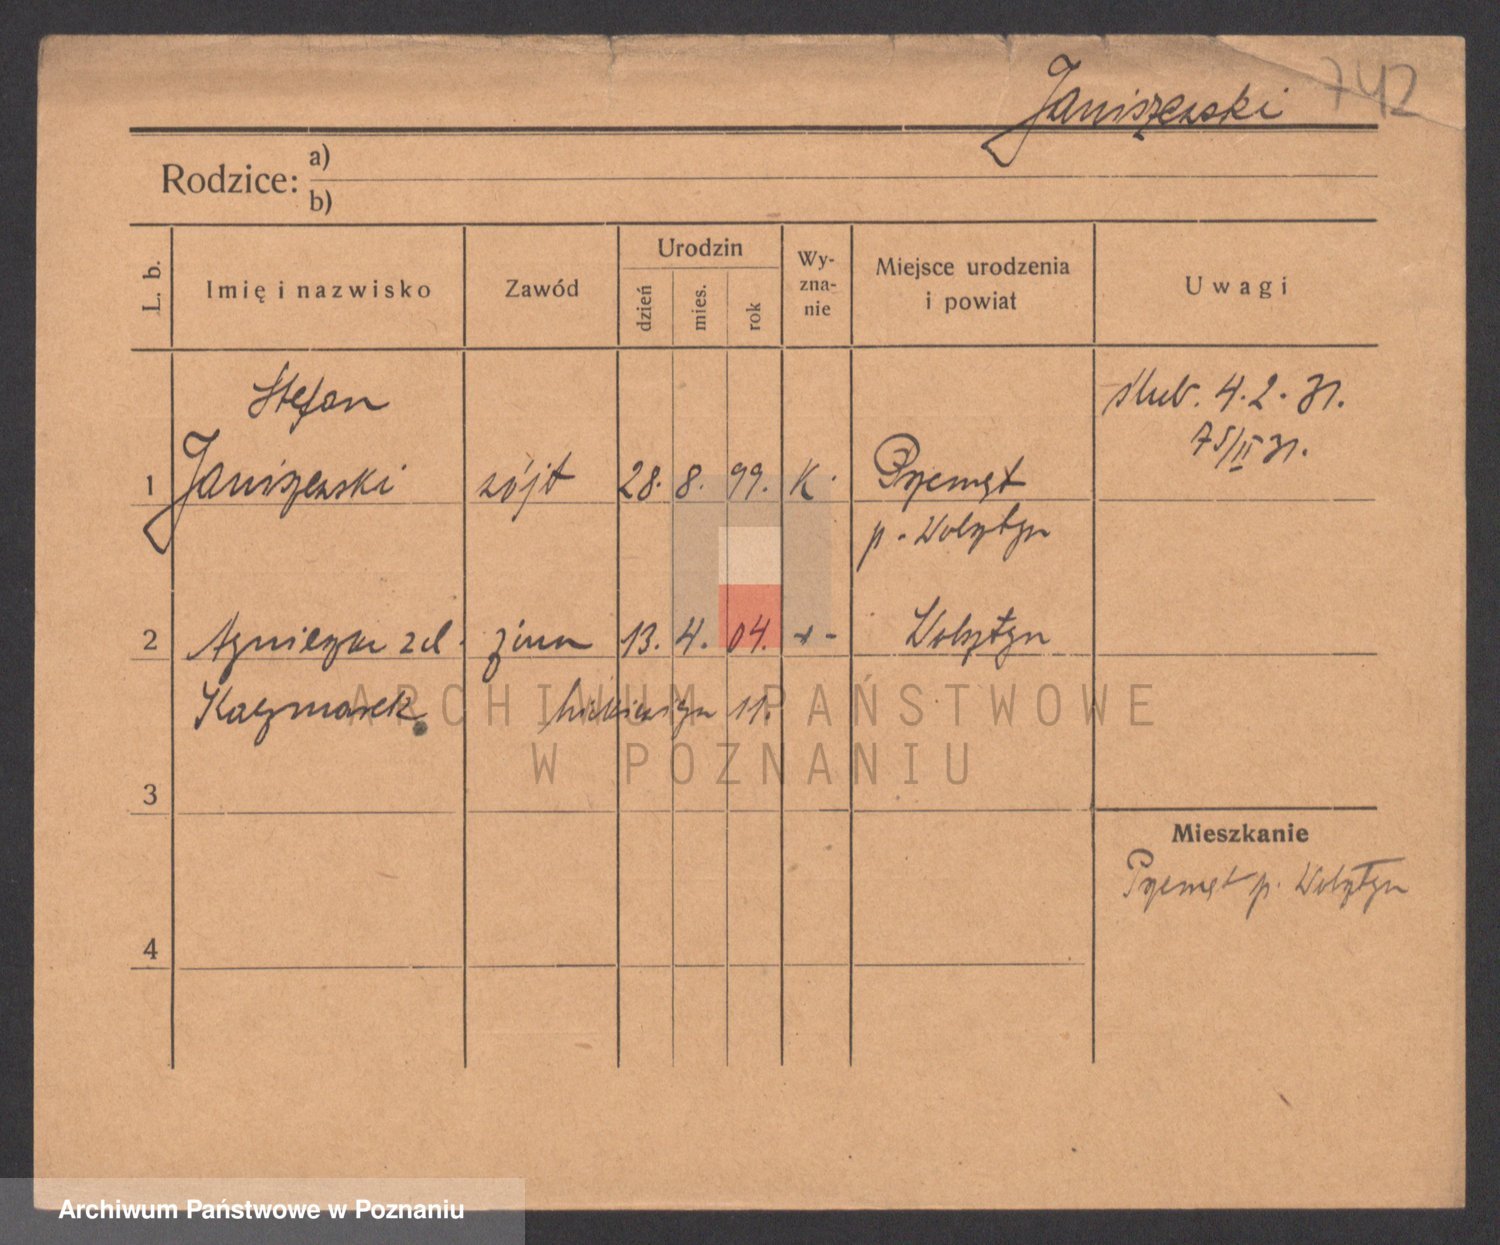 742
Janiszewski
Rodzice: a)
b)
L. b.
Imię i nazwisko
Zawód
Urodzin
dzień
mies.
rok
Wy-
zna-
nie
Miejsce urodzenia
i powiat
Uwagi
Stefan
ślub. 4.2.31.
75/II 31.
1 Janiszewski wójt 28. 8. 99. K. Przemęt
p. Wolsztyn
2 Agnieszka zd. żona 13. 4. 04. -"- Wolsztyn
Kaczmarek 11.
3
4
Mieszkanie
Przemęt p. Wolsztyn
ARCHIWUM PAŃSTWOWE
W POZNANIU
Archiwum Państwowe w Poznaniu